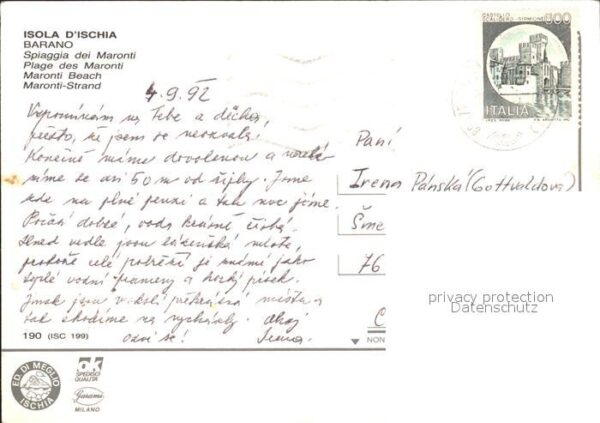 ISOLA D'ISCHIA
BARANO
Spiaggia dei Maronti
Plage des Maronti
Maronti Beach
Maronti-Strand
CASTELLO SCALIGERO - SIRMIONE
ITALIA
4.9.92
Vzpomínám na Tebe a děcha,
přesto, že jsem se neozvala.
Konečně máme dovolenou a
máme se asi 50 m od Jsme
zde na plné penzi a tak moc jíme.
Počasí dobré, voda krásně čistá.
Hned vedle jsou lázeňská místa,
protože celé pobřeží je známé jako
teplé vodní prameny a horký písek.
Jinak jsou v okolí překrásná místa
tak chodíme na vycházky. Ahoj
ozvi se! Irena
Paní
Irena Pánská (Gottvaldová)
Šme
76
C
privacy protection
Datenschutz
190 (ISC 199)
NON
ED. DI MEGLIO
ISCHIA
ak
SPEDISCI
QUALITÀ
Garami
MILANO